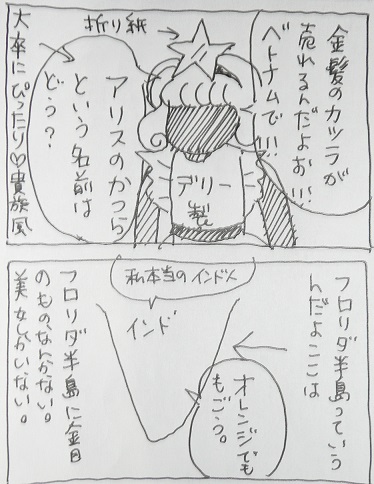 金髪のカツラが
売れるんだよお!!!
ベトナムで!!!
折り紙
アリスのかつら
という名前は
どう?
デリー
製
大卒にぴったり♡貴族風
フロリダ半島っていう
んだよここは
私本当のインド人
インド
オレンジでも
もごう。
フロリダ半島に金目
のものなんかない。
美女しかいない。